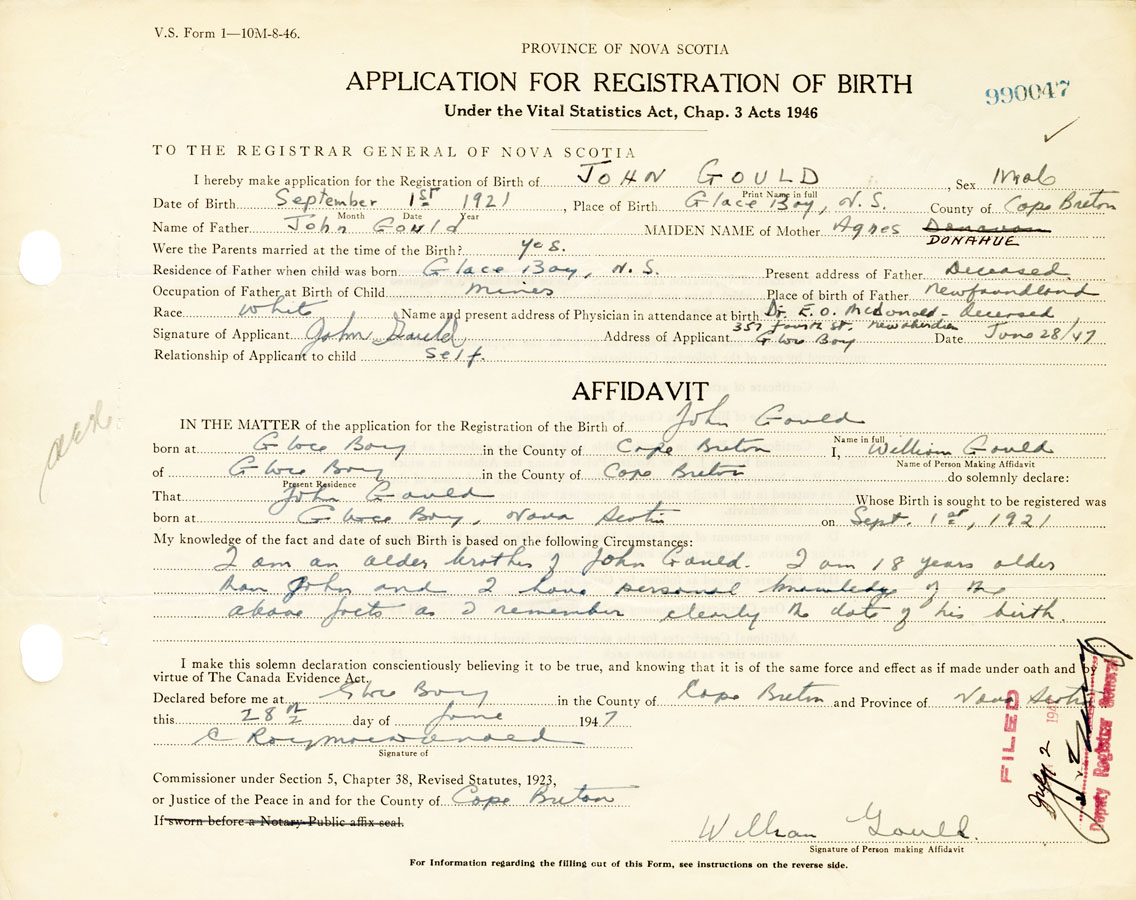 V.S. Form 1—10M-8-46.
PROVINCE OF NOVA SCOTIA
APPLICATION FOR REGISTRATION OF BIRTH
990047
Under the Vital Statistics Act, Chap. 3 Acts 1946
TO THE REGISTRAR GENERAL OF NOVA SCOTIA
I hereby make application for the Registration of Birth of JOHN GOULD, Sex Male
Print Name in full
Date of Birth September 1st 1921, Place of Birth Glace Bay, N.S. County of Cape Breton
Month Date Year
Name of Father John Gould MAIDEN NAME of Mother Agnes Donavan
DONAHUE
Were the Parents married at the time of the Birth? yes.
Residence of Father when child was born Glace Bay, N.S. Present address of Father Deceased
Occupation of Father at Birth of Child Miner Place of birth of Father Newfoundland
Race White Name and present address of Physician in attendance at birth Dr. E.O. McDonald - deceased
357 Fourth St. New Aberdeen
Signature of Applicant John Gould Address of Applicant Glace Bay Date June 28/47
Relationship of Applicant to child Self.
AFFIDAVIT
IN THE MATTER of the application for the Registration of the Birth of John Gould
Name in full
born at Glace Bay in the County of Cape Breton I, William Gould
Name of Person Making Affidavit
of Glace Bay in the County of Cape Breton do solemnly declare:
Present Residence
That John Gould Whose Birth is sought to be registered was
born at Glace Bay, Nova Scotia on Sept. 1st, 1921
My knowledge of the fact and date of such Birth is based on the following Circumstances:
I am an older brother of John Gould. I am 18 years older
than John and I have personal knowledge of the
above facts as I remember clearly the date of his birth.
I make this solemn declaration conscientiously believing it to be true, and knowing that it is of the same force and effect as if made under oath and by
virtue of The Canada Evidence Act.
Declared before me at Glace Bay in the County of Cape Breton and Province of Nova Scotia
this 28th day of June 1947
Signature of
Commissioner under Section 5, Chapter 38, Revised Statutes, 1923,
or Justice of the Peace in and for the County of Cape Breton
If sworn before a Notary Public affix seal.
William Gould.
Signature of Person making Affidavit
For Information regarding the filling out of this Form, see instructions on the reverse side.
FILED
July 2 194
Deputy Registrar General